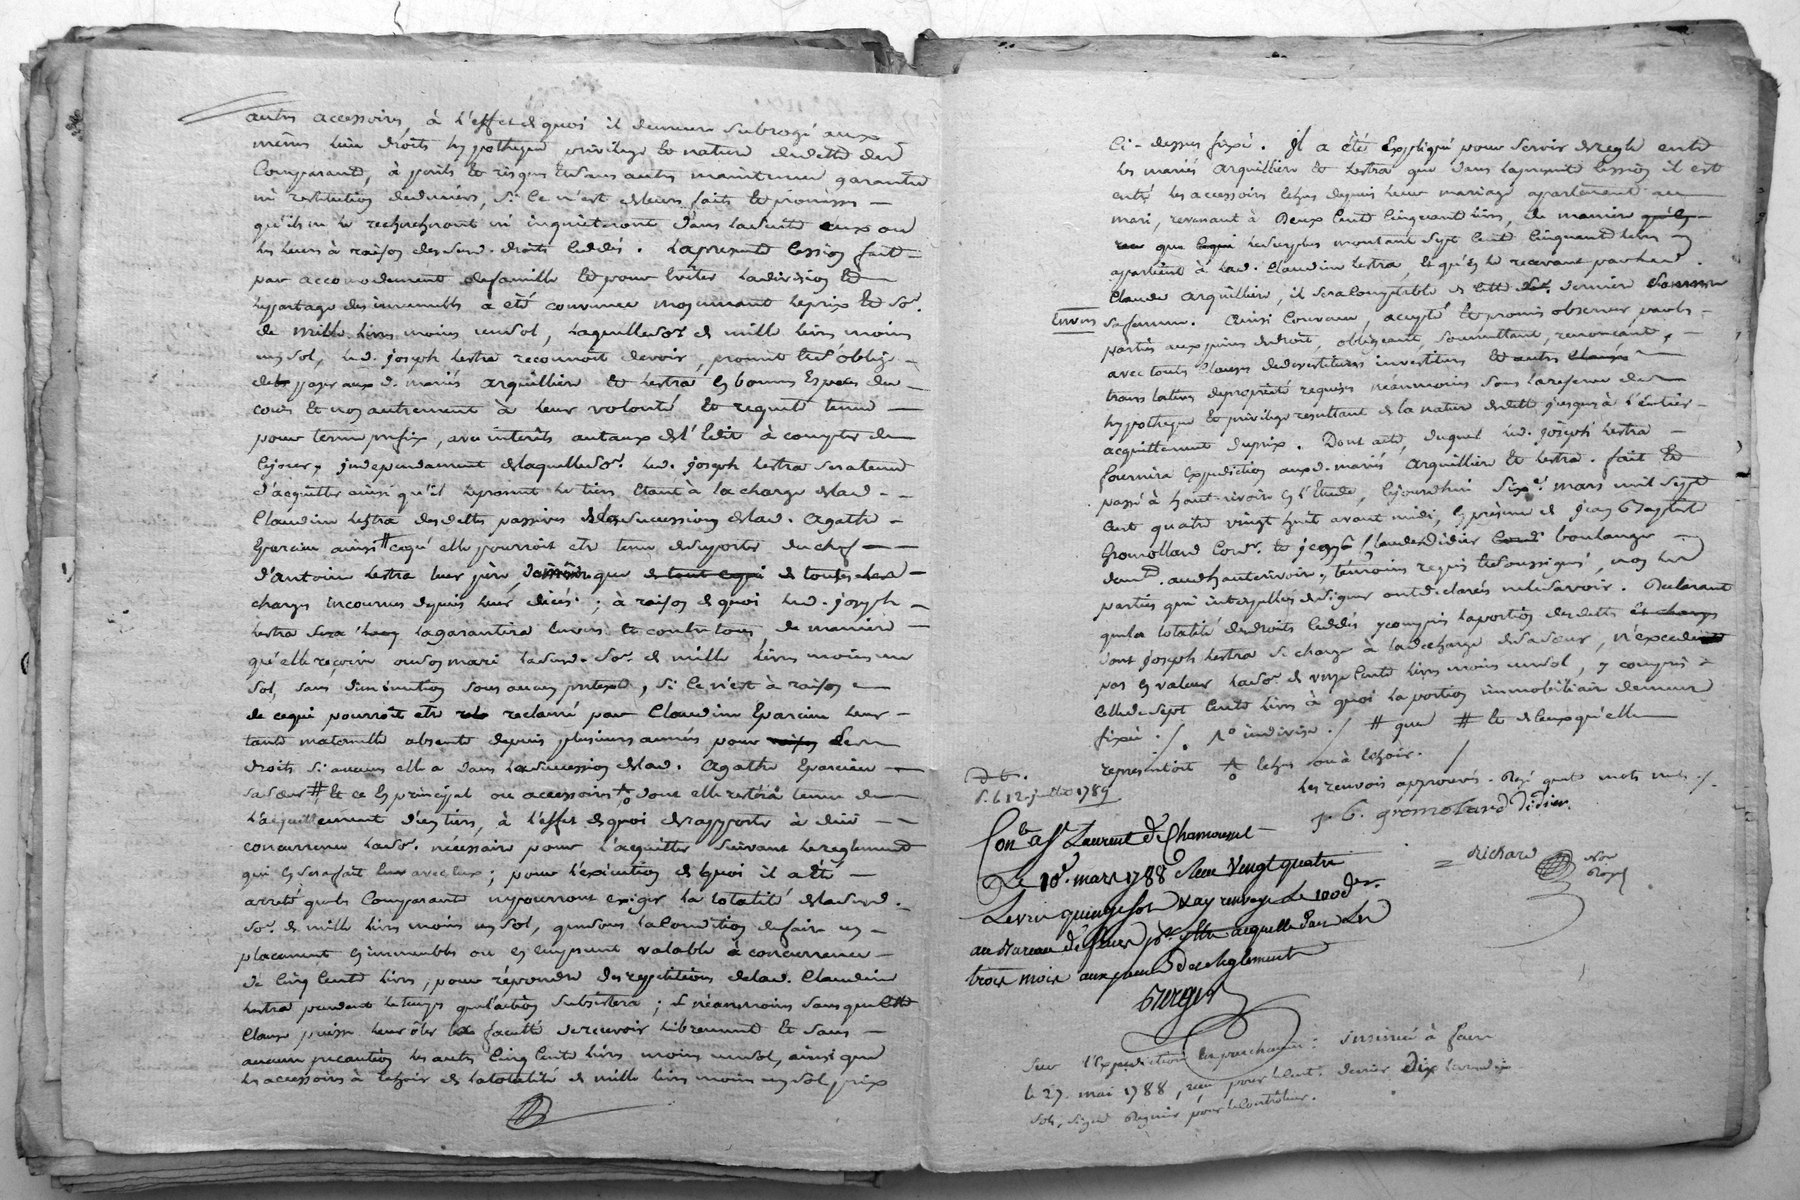 autres accessoires, à l'effet de quoi il demeure subrogé aux
mêmes lieu droits hypotheque privilege et nature de dette des
Comparants, à perils et risques et sans autre maintenue garantie
ni restitution de deniers, si ce n'est de leurs faits et promesses
qu'ils ne le rechercheront ni inquieteront dans la suite eux ou
les leurs à raison des susd. droits cedés. la presente cession fait
par accomodement de famille et pour eviter la division et
le partage des immeubles a été convenue moyennant le prix et so.
de mille livres moins un sol, laquelle so. de mille livres moins
un sol, led. joseph lestra reconnoit devoir, promet et s'oblige
de payer aux d. mariés arquillière et lestra en bonnes Especes du
cours et non autrement à leur volonté et requete tenue
pour terme prefix, avec interêts au taux de l'Edit à compter de
ce jour, independament de laquelle so. led. joseph lestra sera tenu
d'acquitter ainsi qu'il le promet le tiers etant à la charge de lad.
Claudine lestra des dettes passives de la succession de lad. agathe
Eparcieu ainsi # ce qu'elle pourroit etre tenue de suporter du chef
d'antoine lestra leur père, de même que de toutes les
charges incourues depuis leur décès; à raison de quoi led. joseph
lestra sera la garantira envers et contre tous, de maniere
qu'elle reçoive ou son mari lad. so. de mille livres moins un
sol, sans diminution sous aucun pretexte, si ce n'est à raison
de ce qui pourroit etre reclamé par Claudine Eparcieu leur
tante maternelle absente depuis plusieurs années pour ses
droits si aucuns elle a dans la succession de lad. agathe Eparcieu
sa sœur # et ce en principal ou accessoires dont elle restera tenue de
l'acquittement d'un tiers, à l'effet de quoi de rapporter à due
concurrence lad. so. nécessaire pour l'acquitter suivant le reglement
qui en sera fait leur avec eux; pour l'exécution de quoi il a été
arrêté que les Comparants ne pourront exiger la totalité de la susd.
so. de mille livres moins un sol, que sous la condition de faire un
placement en immeubles ou en emprunt valable à concurrence
de cinq cents livres, pour répondre des repetitions de lad. Claudine
lestra pendant le temps que l'action subsistera; et néanmoins sans que cette
clause puisse leur ôter la faculté de recevoir librement et sans
aucune precaution les autres cinq cents livres moins un sol, ainsi que
les accessoires à echoir de la totalité de mille livres moins un sol, prix
Ci-dessus fixé. Il a été Expliqué pour servir de regle entre
les mariés arquillière et lestra que dans la presente cession il est
entré les accessoires echus depuis leur mariage appartenant au
mari, revenant à Deux Cents Cinquante livres, de maniere
que le surplus montant sept cents cinquante livres
appartient à lad. Claudine lestra, et qu'en le recevant par led.
Claude arquillière, il sera comptable de cette derniere somme
Envers sa femme. Ainsi convenu, accepté et promis observer par les
parties aux peines de droit, obligeant, soumettant, renonçant,
avec toutes clauses de devestitures investitures et autres
translatives de propriété requises neanmoins sous la reserve de
hypotheque et privilege resultant de la nature de dette jusques à l'entier
acquittement du prix. Dont acte, duquel led. joseph lestra
fournira Expedition aux d. mariés arquillière et lestra. fait et
passé à hautrivoire en l'Etude, ce jourdhui sixe. mars mil sept
cent quatre vingt huit avant midi, en presence de jean Baptiste
Gromollard Cord. et Claude Didier boulanger
demt. aud. hauterivoire, témoins requis et soussignés, non les
parties qui interpellées de signer ont declarés ne le savoir. Declarant
que la totalité des droits cedés y compris la portion des dettes
dont joseph lestra se charge à la decharge de sa sœur, n'excedent
pas en valeur la so. de onze cents livres moins un sol, y compris
celle de sept cents livres à quoi la portion immobiliaire demeure
fixée ./. no indivise ./ # que # et de ceux qu'elle
representoit echus ou à echoir.
les renvois approuvés. Rayé quatre mots nuls ./.
J. B. gromolard Didier
Richard Nore Royal
D. E.
S. le 12 juillet 1789
Con. à St. Laurent de Chamousset
Le 10e. mars 1788 Reçu Vingt quatre
Livres quinze sols ay renvoyé Le 100e. der.
au Bureau de
trois mois aux peines des Reglements
Berger
Sur l'Expedition en parchemin: insinué à feurs
le 27. mai 1788, reçu pour le cent. denier Dix livres dix
sols, signé Regnier pour le Controleur.